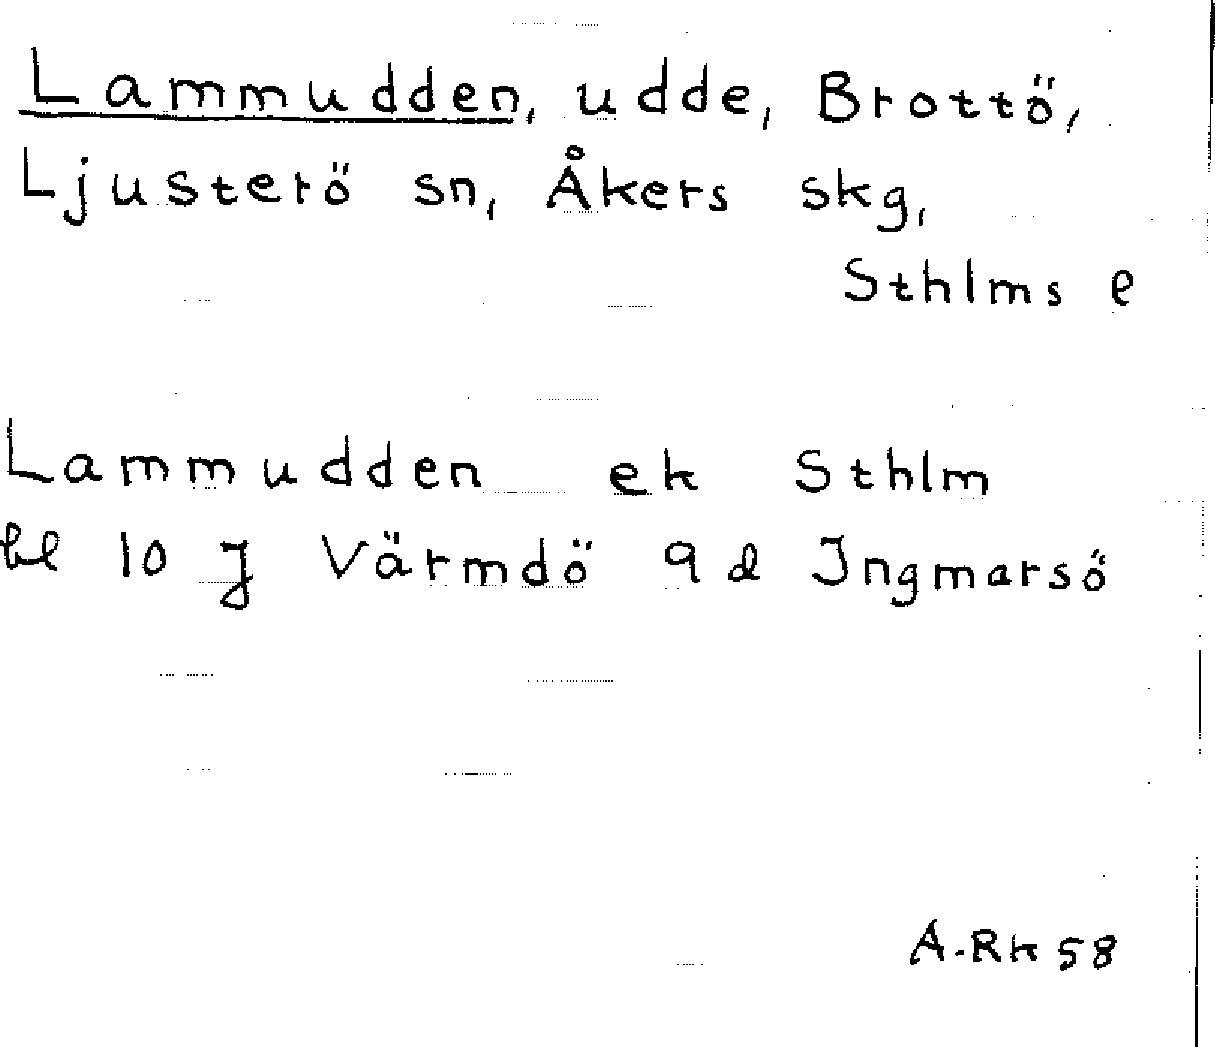 Lammudden, udde, Brottö,
Ljusterö sn, Åkers skg,
Sthlms l
Lammudden ek Sthlm
bl 10 J Värmdö 9 d Ingmarsö
A-Rk 58